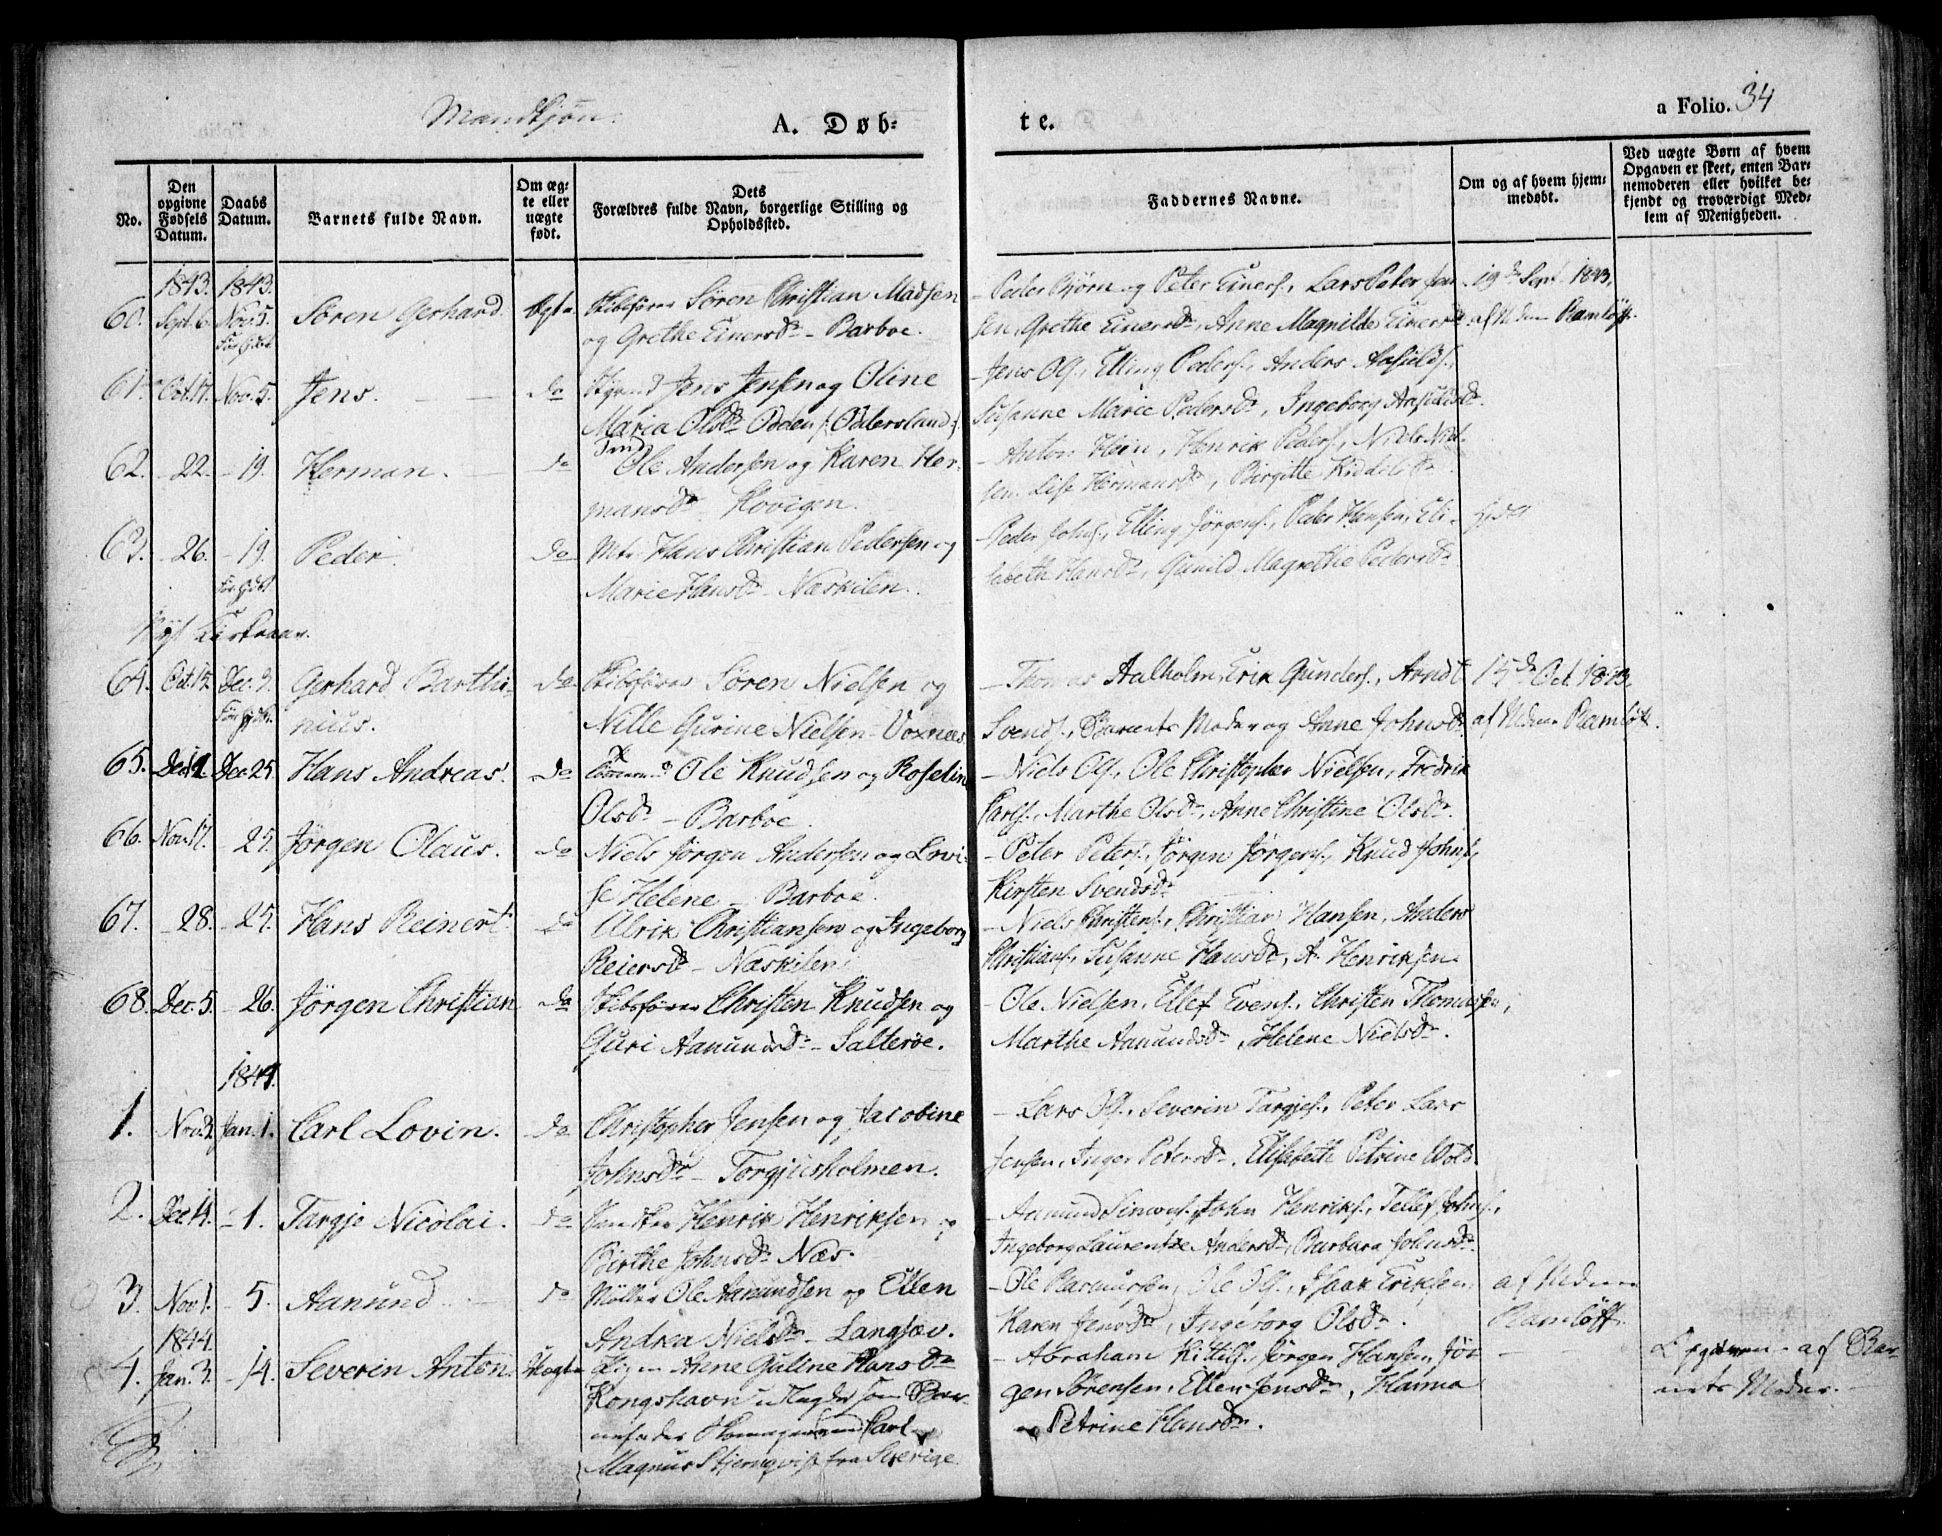 Mandkjøn.
A. Døb-
te.
a Folio. 34
No.
Den opgivne Fødsels Datum.
Daabs Datum.
Barnets fulde Navn.
Om ægte eller uægte født.
Dets Forældres fulde Navn, borgerlige Stilling og Opholdssted.
Faddernes Navne.
Om og af hvem hjemmedøbt.
Ved uægte Børn af hvem Opgaven er skeet, enten Barnemoderen eller hvilket bekjendt og troværdigt Medlem af Menigheden.
1843. 1843.
60. Sept. 6. Nov. 5. Søren Gerhard. Ægte Skibsfører Søren Christian Madsen
og Grethe Einersdr - Barboe.
- Peder Bjørn og Peter Einers., Lars Peter Jen-
sen, Grethe Einersdr, Anne Magnilde Einersdr
19de Sept. 1843
af Ramløff
61. Oct. 17. Nov. 5. Jens. do Jens Jensen og Oline
Maria Olsdr Odden (Oddersland).
- Jens Ols., Elling Peders., Anders Aasulds.,
Susanne Marie Pedersdr, Ingeborg Aasuldsdr.
62. - 22. - 19. Herman. do Ole Andersen og Karen Her-
mansdr
- Anton Hein, Henrik Peders., Niels Niel-
sen. Lise Hermansdr, Birgitte Kiddelsdr
63. - 26. - 19. Peder. do Mt. Hans Christian Pedersen og
Marie Hansdr - Næskilen.
- Peder Johns., Elling Jørgens., Peder Hansen, Eli-
sebeth Hansdr, Gunild Magrethe Pedersdr
Nyt Kirkeaar.
64. Oct. 15. Dec. 3. Gerhard Barthi-
nius.
do Skibsfører Søren Nielsen og
Nille Gurine Nielsen - Voxnæs.
- Thomas Aalholm, Erik Gunders., Arndt
Svends., Barnets Moder og Anne Johnsdr
15de Oct. 1843
af Ramløff.
65. Dec. 25. Hans Andreas. do Ole Knudsen og Roselin
Olsdr - Barboe.
- Niels Ols., Ole Christopher Nielsen, Fredrik
Carls., Marthe Olsdr, Anne Christine Olsdr.
66. Nov. 17. 25. Jørgen Olaus. do Niels Jørgen Andersen og Lovi-
se Helene - Barboe.
- Peter Peters., Jørgen Jørgens., Knud Johns.,
Kirsten Svendsdr
67. - 28. - 25. Hans Reinert. do Ulrik Christiansen og Ingeborg
Reiersdr - Næskilen.
- Niels Christens., Christian Hansen, Anders
Christians., Susanne Hansdr, A. Henriksen.
68. Dec. 5. - 26. Jørgen Christian do Skibsfører Christen Knudsen og
Guri Aanundsdr - Salterøe.
- Ole Nielsen, Ellef Evens., Christen Thomassen,
Marthe Aanundsdr, Helene Nielsdr.
1844.
1. Nov. 2. Jan. 1. Carl Lovin. do Christopher Jensen og Jacobine
Johnsdr - Torgjusholmen.
- Lars Ols., Severin Targjes., Peter Lars
Jensen, Inger Petersdr, Elisebeth Petrine Wold
2. Dec. 14. - 1. Targje Nicolai. do Henrik Henriksen og
Birthe Johnsdr Næs.
- Aanund Simons., John Henriks., Tellef Johns.,
Ingeborg Laurentze Andersdr, Barbara Johnsdr.
3. Nov. 1. - 5. Aanund. do Møller Ole Aanundsen og Ellen
Andrea Nielsdr - Langsæv.
- Ole Rasmussen, Ole Ols., Isaak Eriksen,
Karen Jensdr, Ingeborg Olsdr.
af
Ramløff.
1844
4. Jan. 3. - 14. Severin Anton. Uægte Pigen Anne Guline Hansdr
Kongshavn Ungkr som Bar-
nefader Skomagersvend Carl
Magnus Stjernqvist fra Sverige.
- Abraham Kittils., Jørgen Hansen, Jør-
gen Sørensen, Ellen Jensdr, Hanna
Petrine Hansdr.
Opgiven af Bar-
nets Moder.